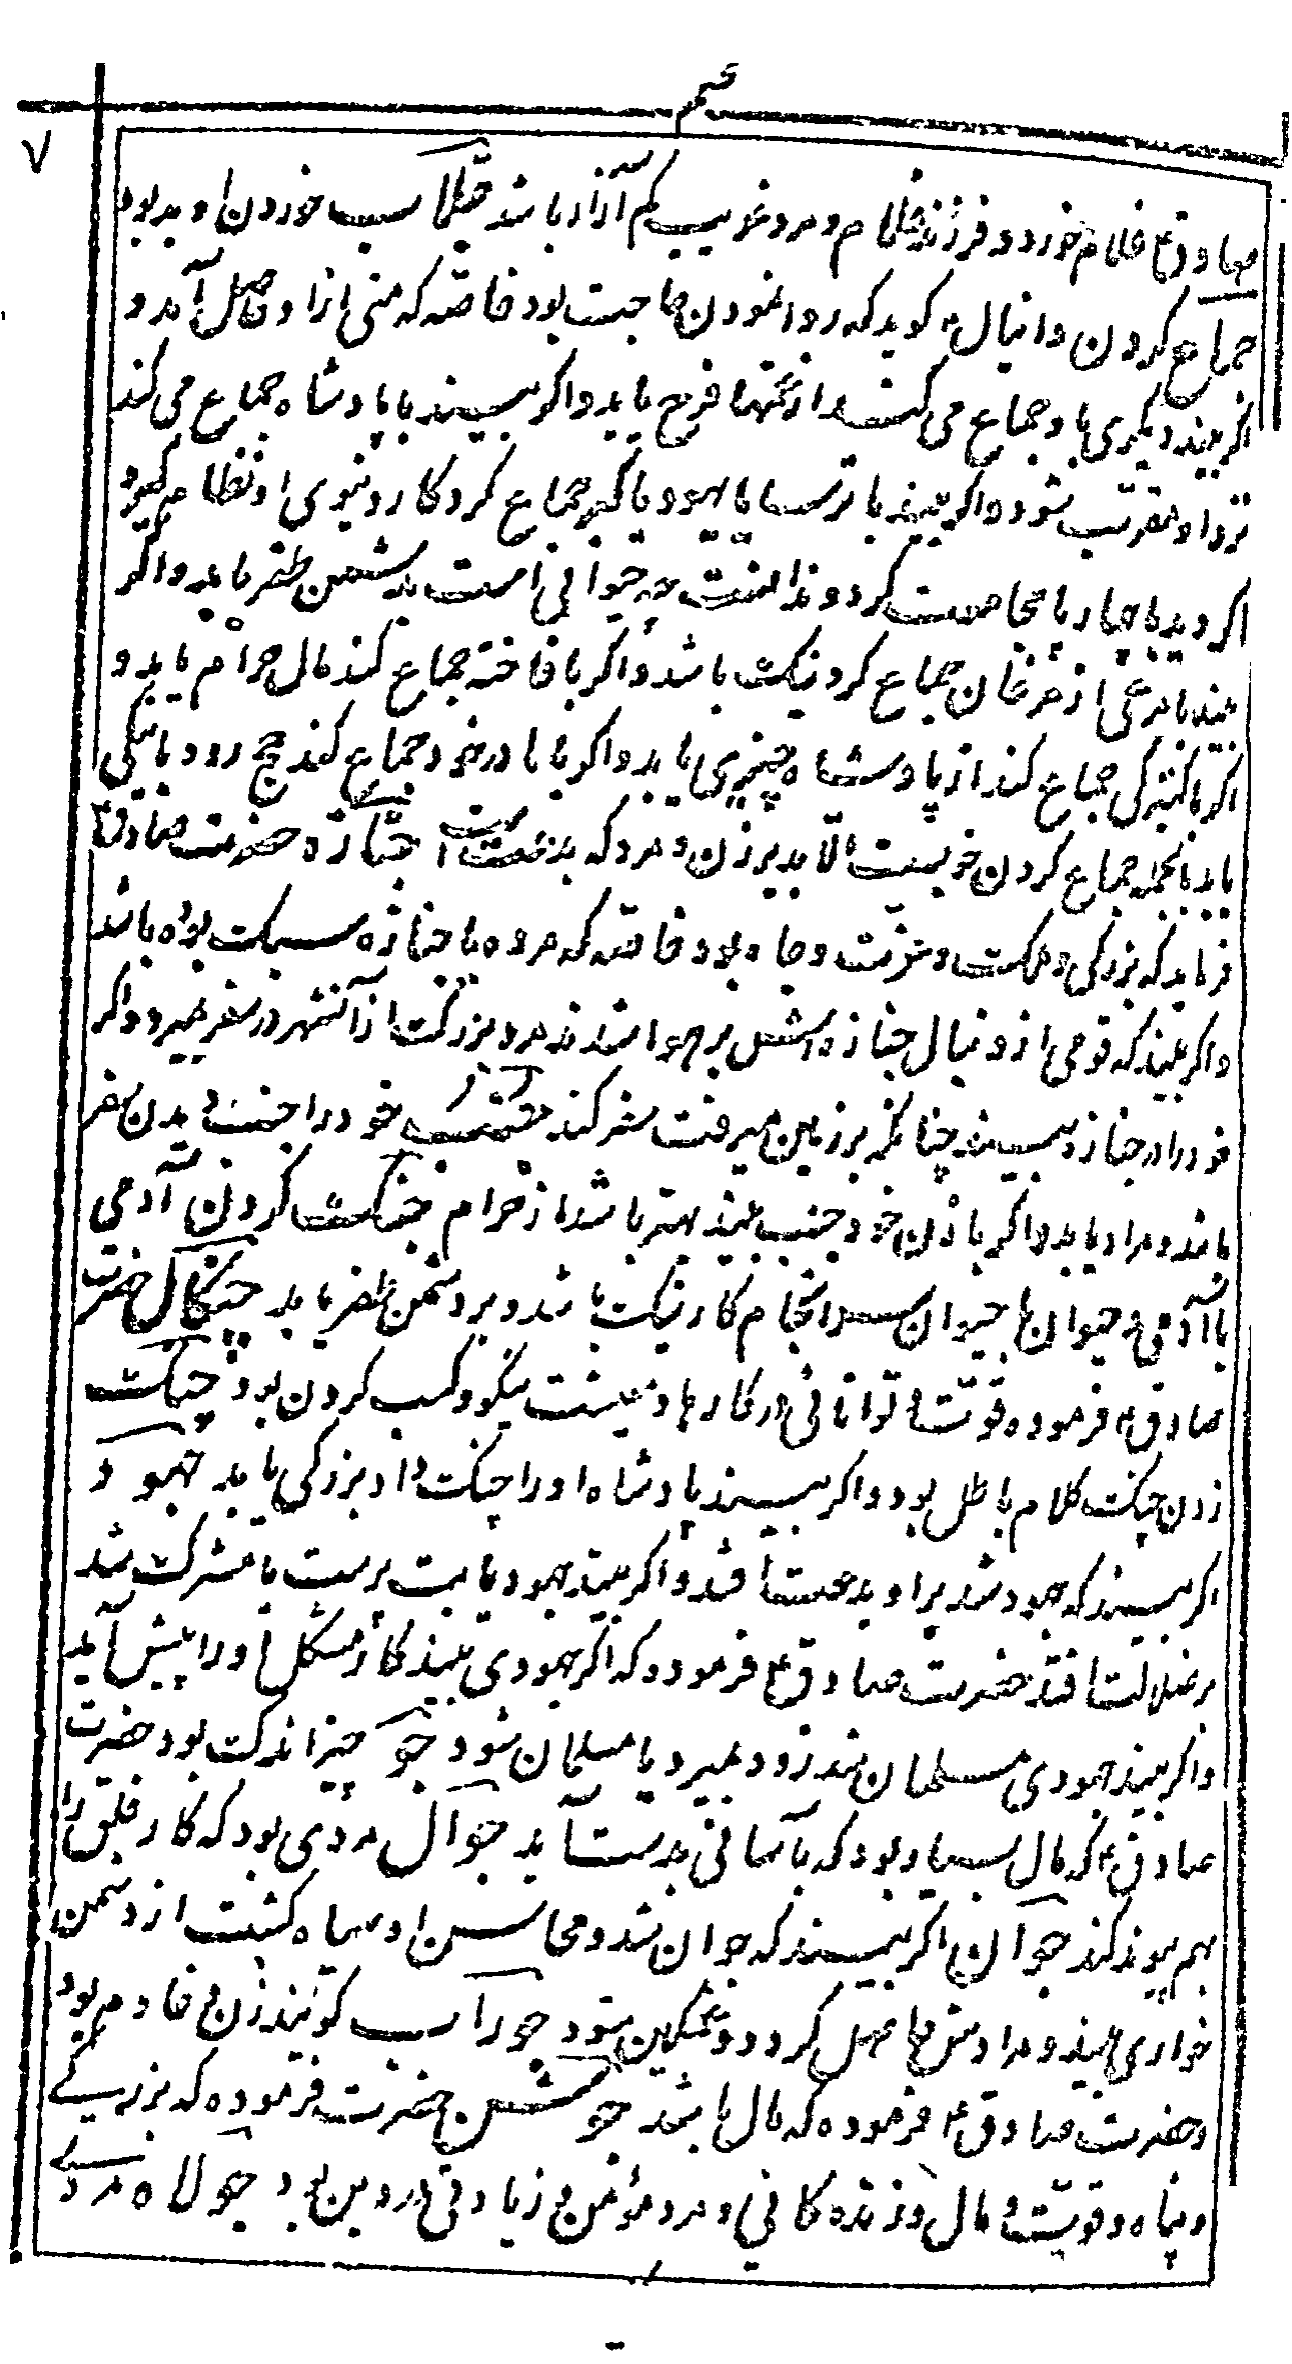 جیم
۷
صادق ع غلام خورد و فرزند غلام و مرد غریب کم آزار باشد جلاب خوردن او بد بود
جماع کردن دانیال ع گوید که روا نمودن حاجت بود خاصه که منی از او حاصل آمد و
اگر بیند دیگری با او جماع می کند از غمها فرح یابد و اگر بیند با پادشاه جماع می کند
نزد او مقرب شود و اگر بیند با ترسا یا یهود یا گبر جماع کرد کار دنیوی او نظام گیرد
اگر دید با چارپا مجامعت کرد و ندانست چه حیوانی است بدشمن ظفر یابد و اگر
بیند با مرغی از مرغان جماع کرد نیک باشد و اگر با فاخته جماع کند مال حرام یابد و
اگر با کنیزکی جماع کند از پادشاه چیزی یابد و اگر با مادر خود جماع کند حج رود یا نیکی
یابد بالجمله جماع کردن خوبست الا بد پیر زن و مرد که بدعت است جنازه حضرت صادق ع
فرماید که بزرگی و ملکت و عزت و جاه بود خاصه که مرده یا جنازه سبک بوده باشد
و اگر بیند که قومی از دنبال جنازه اش بر هوا شدند مرد بزرگ از آنشهر در سفر بمیرد و اگر
خود را در جنازه بیند چنانکه بر زمین میرفت سفر کند جنب خود را جنب دیدن سفر
باشد و مراد یابد و اگر با زن خود جنب بیند بهتر باشد از حرام جنگ کردن آدمی
با آدمی و حیوان با حیوان سرانجام کار نیک باشد و بر دشمن ظفر یابد چنگال حضرت
صادق ع فرموده قوت و توانائی در کارها و معیشت نیکو و کسب کردن بود چنگ
زدن چنگ کلام باطل بود و اگر بیند پادشاه او را چنگ داد بزرگی یابد جهود
اگر بیند که جهود شد بر او بدعت افتد و اگر بیند جهود یا بت پرست یا مشرک شد
بر ضلالت افتد حضرت صادق ع فرمود که اگر جهودی بیند کار مشکل او را پیش آید
و اگر بیند جهودی مسلمان شد زود بمیرد یا مسلمان شود جو چیز اندک بود حضرت
صادق ع که مال بسیار بود که بآسانی بدست آید جوال مردی بود که کار خلق را
بهم پیوند کند جوان اگر بیند که جوان شد و محاسن او سیاه گشت از دشمن
خواری بیند و مرادش حاصل گردد و غمگین شود جوراب گویند زن و خادم بود
و حضرت صادق ع فرموده که مال باشد جوشن حضرت فرموده که بزرگی
و پناه و قوت و مال و زندگانی و مرد مؤمن و زیادتی در دین بود جولاه مردی